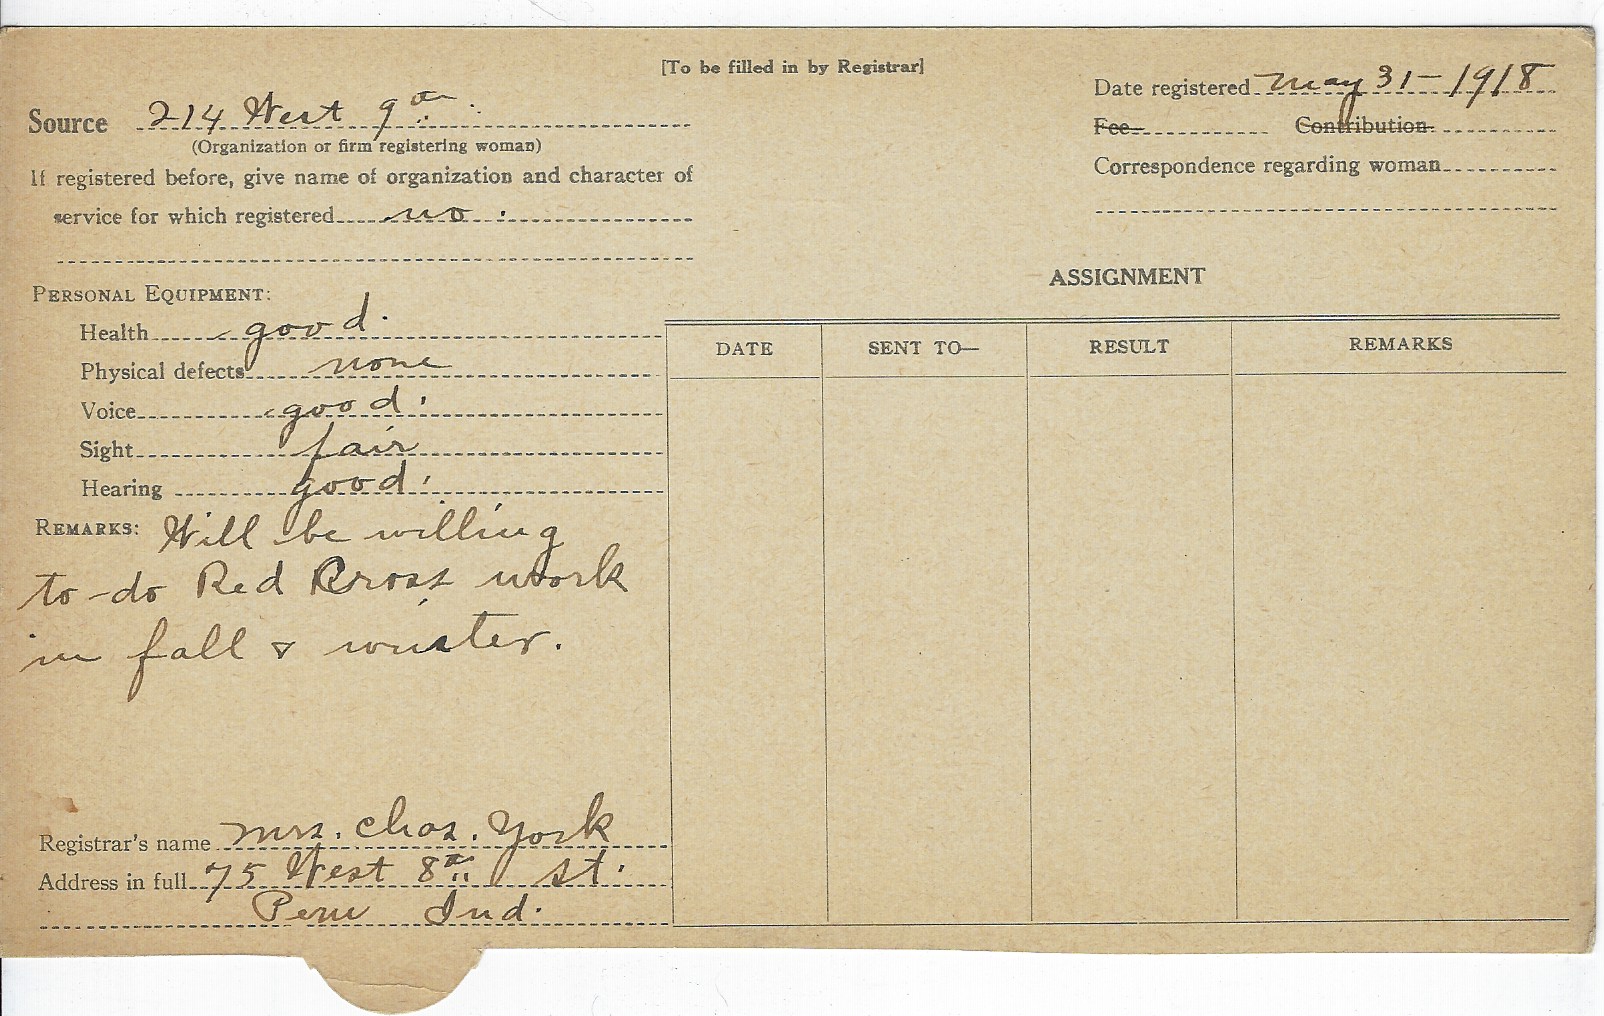 [To be filled in by Registrar]
Date registered May 31 - 1918
Source 214 West 9th.
Fee Contribution
(Organization or firm registering woman)
Correspondence regarding woman
If registered before, give name of organization and character of
service for which registered no.
ASSIGNMENT
PERSONAL EQUIPMENT:
Health good.
Physical defects none
Voice good.
Sight fair
Hearing good.
DATE SENT TO— RESULT REMARKS
REMARKS: Will be willing
to do Red Cross work
in fall & winter.
Registrar's name Mrs. Chas. York
Address in full 75 West 8th St.
Peru Ind.